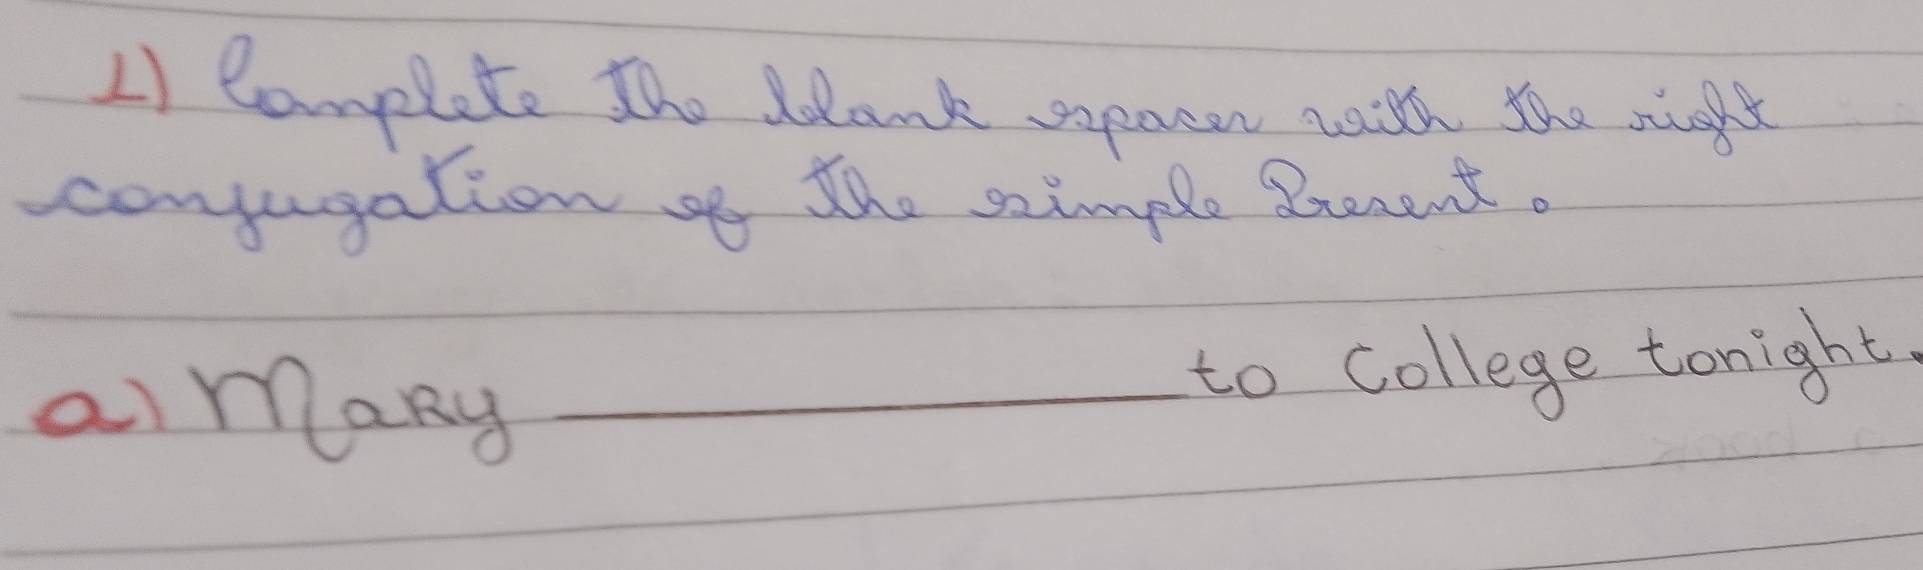 1) Complete the blank spaces with the right
conjugation of the simple Present.
a) Mary ______ to College tonight.